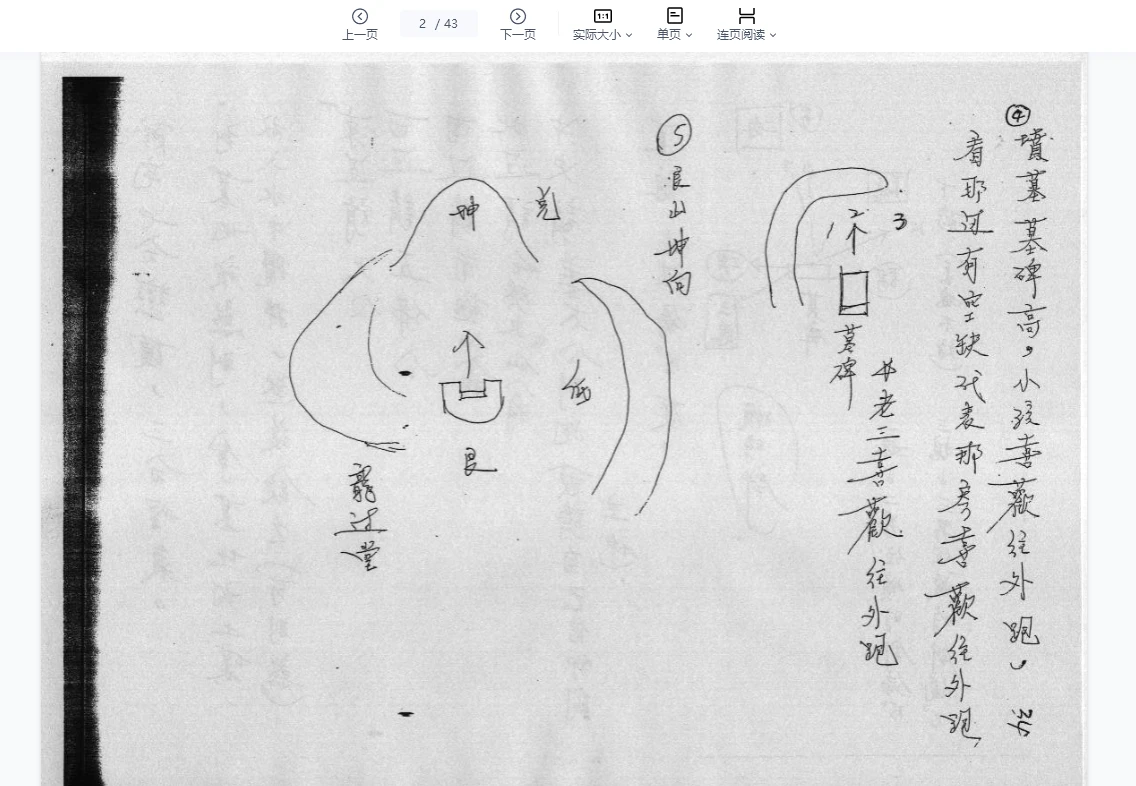 上一页
2 / 43
下一页
实际大小
单页
连页阅读
④
墳墓墓碑高，小孩喜歡往外跑，
看那河有空缺代表那房喜歡往外跑，
3
1 2
墓碑
老三喜歡往外跑
⑤
艮山坤向
兑
坤
低
艮
龍过堂